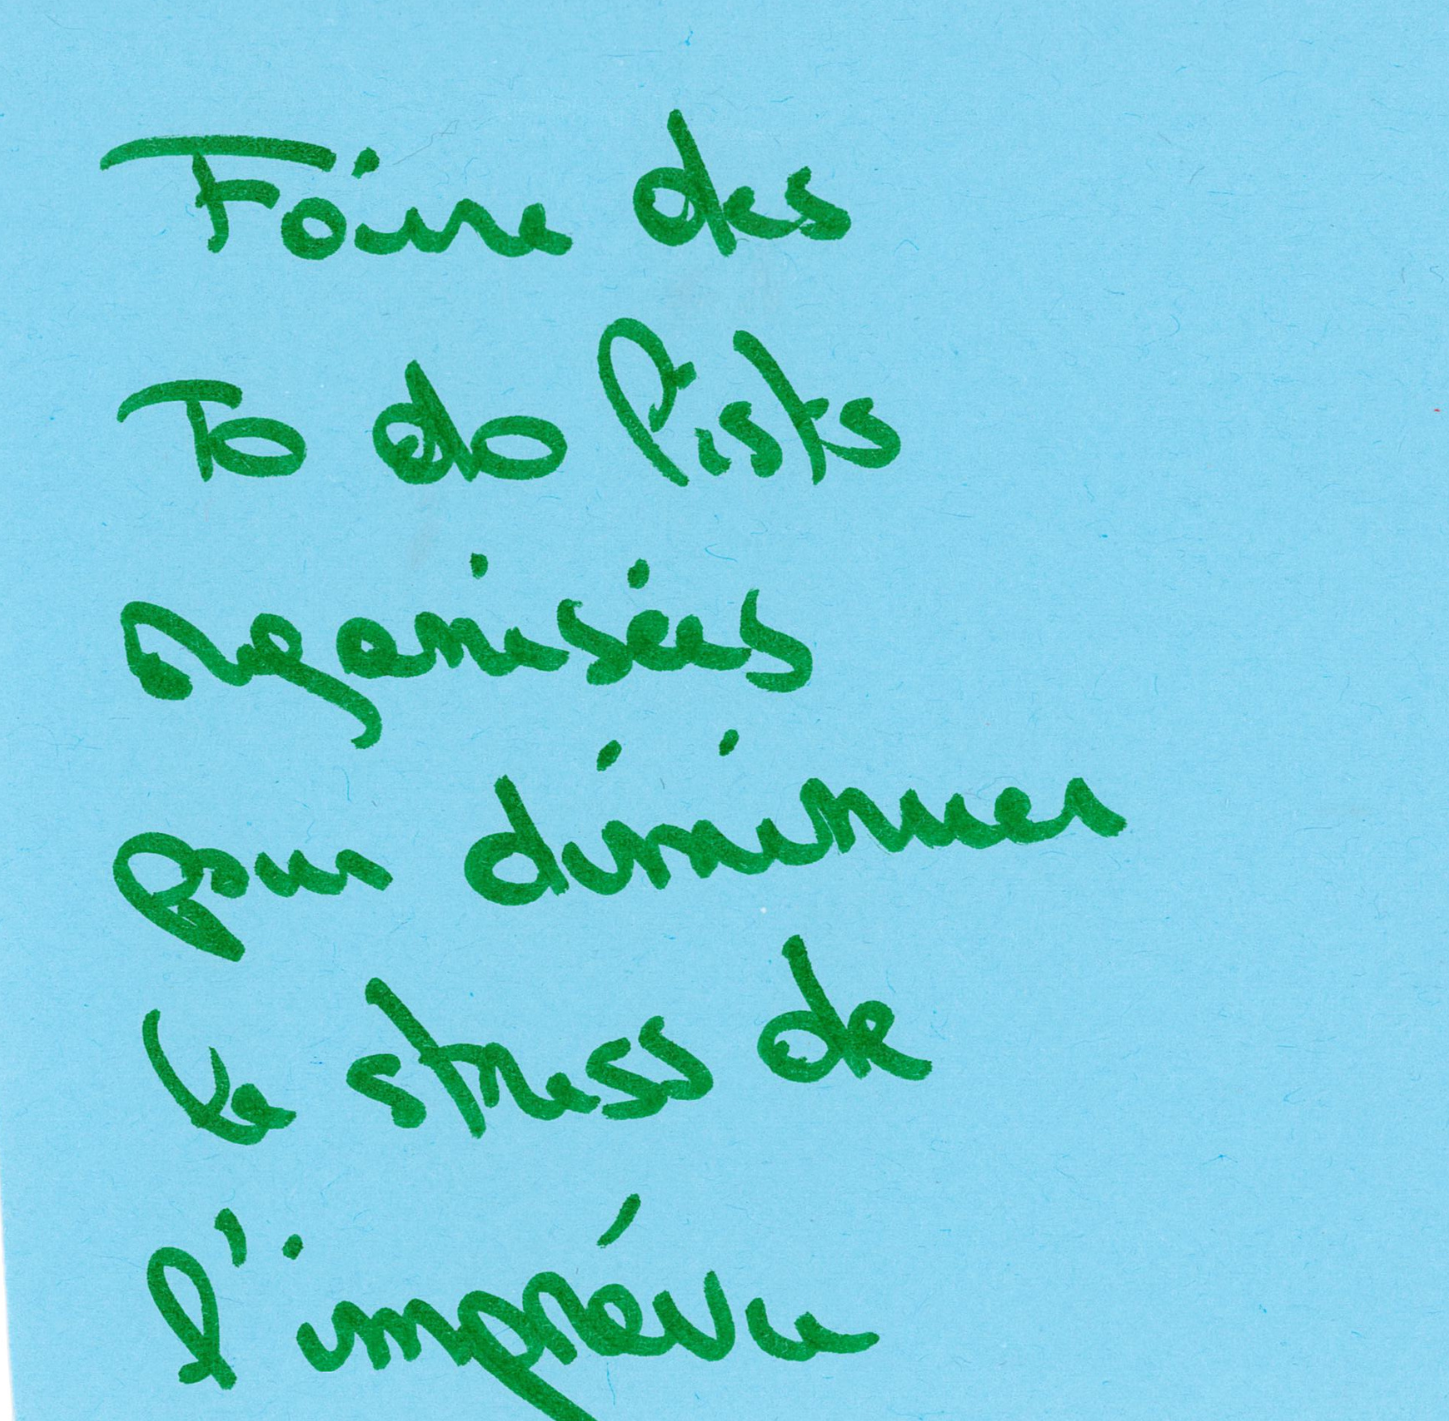 Faire des
To do lists
organisées
pour diminuer
le stress de
l'imprévu